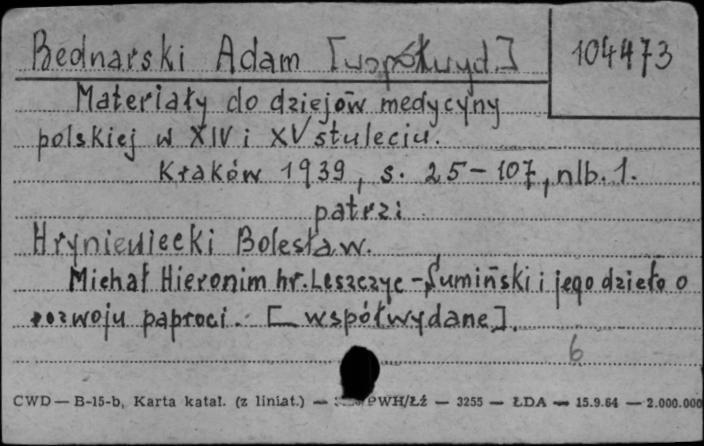 Bednarski Adam [współwyd.]
104473
Materiały do dziejów medycyny
polskiej w XIV i XV stuleciu.
Kraków 1939, s. 25-107, nlb. 1.
patrzi
Hryniewiecki Bolesław.
Michał Hieronim hr. Leszczyc-Sumiński i jego dzieło o
rozwoju paproci. [współwydane].
6
CWD — B-15-b, Karta katal. (z liniat.) — PWH/Łź — 3255 — ŁDA — 15.9.64 — 2.000.000